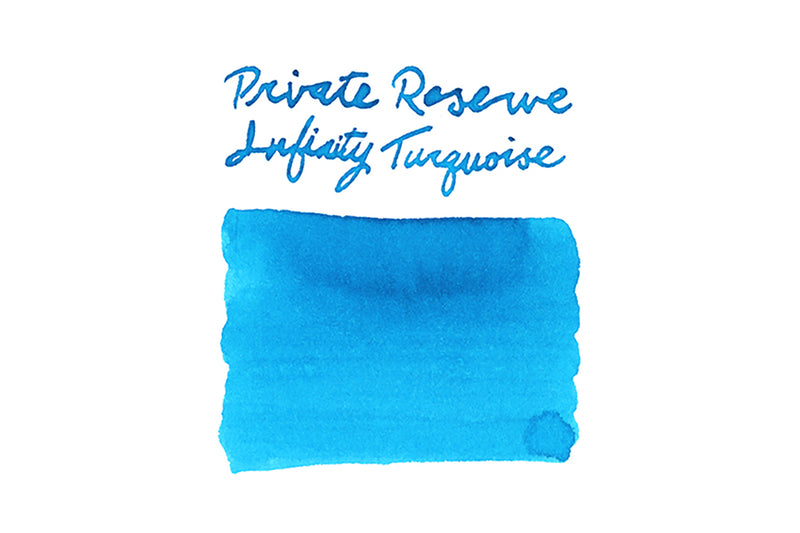 Private Reserve
Infinity Turquoise